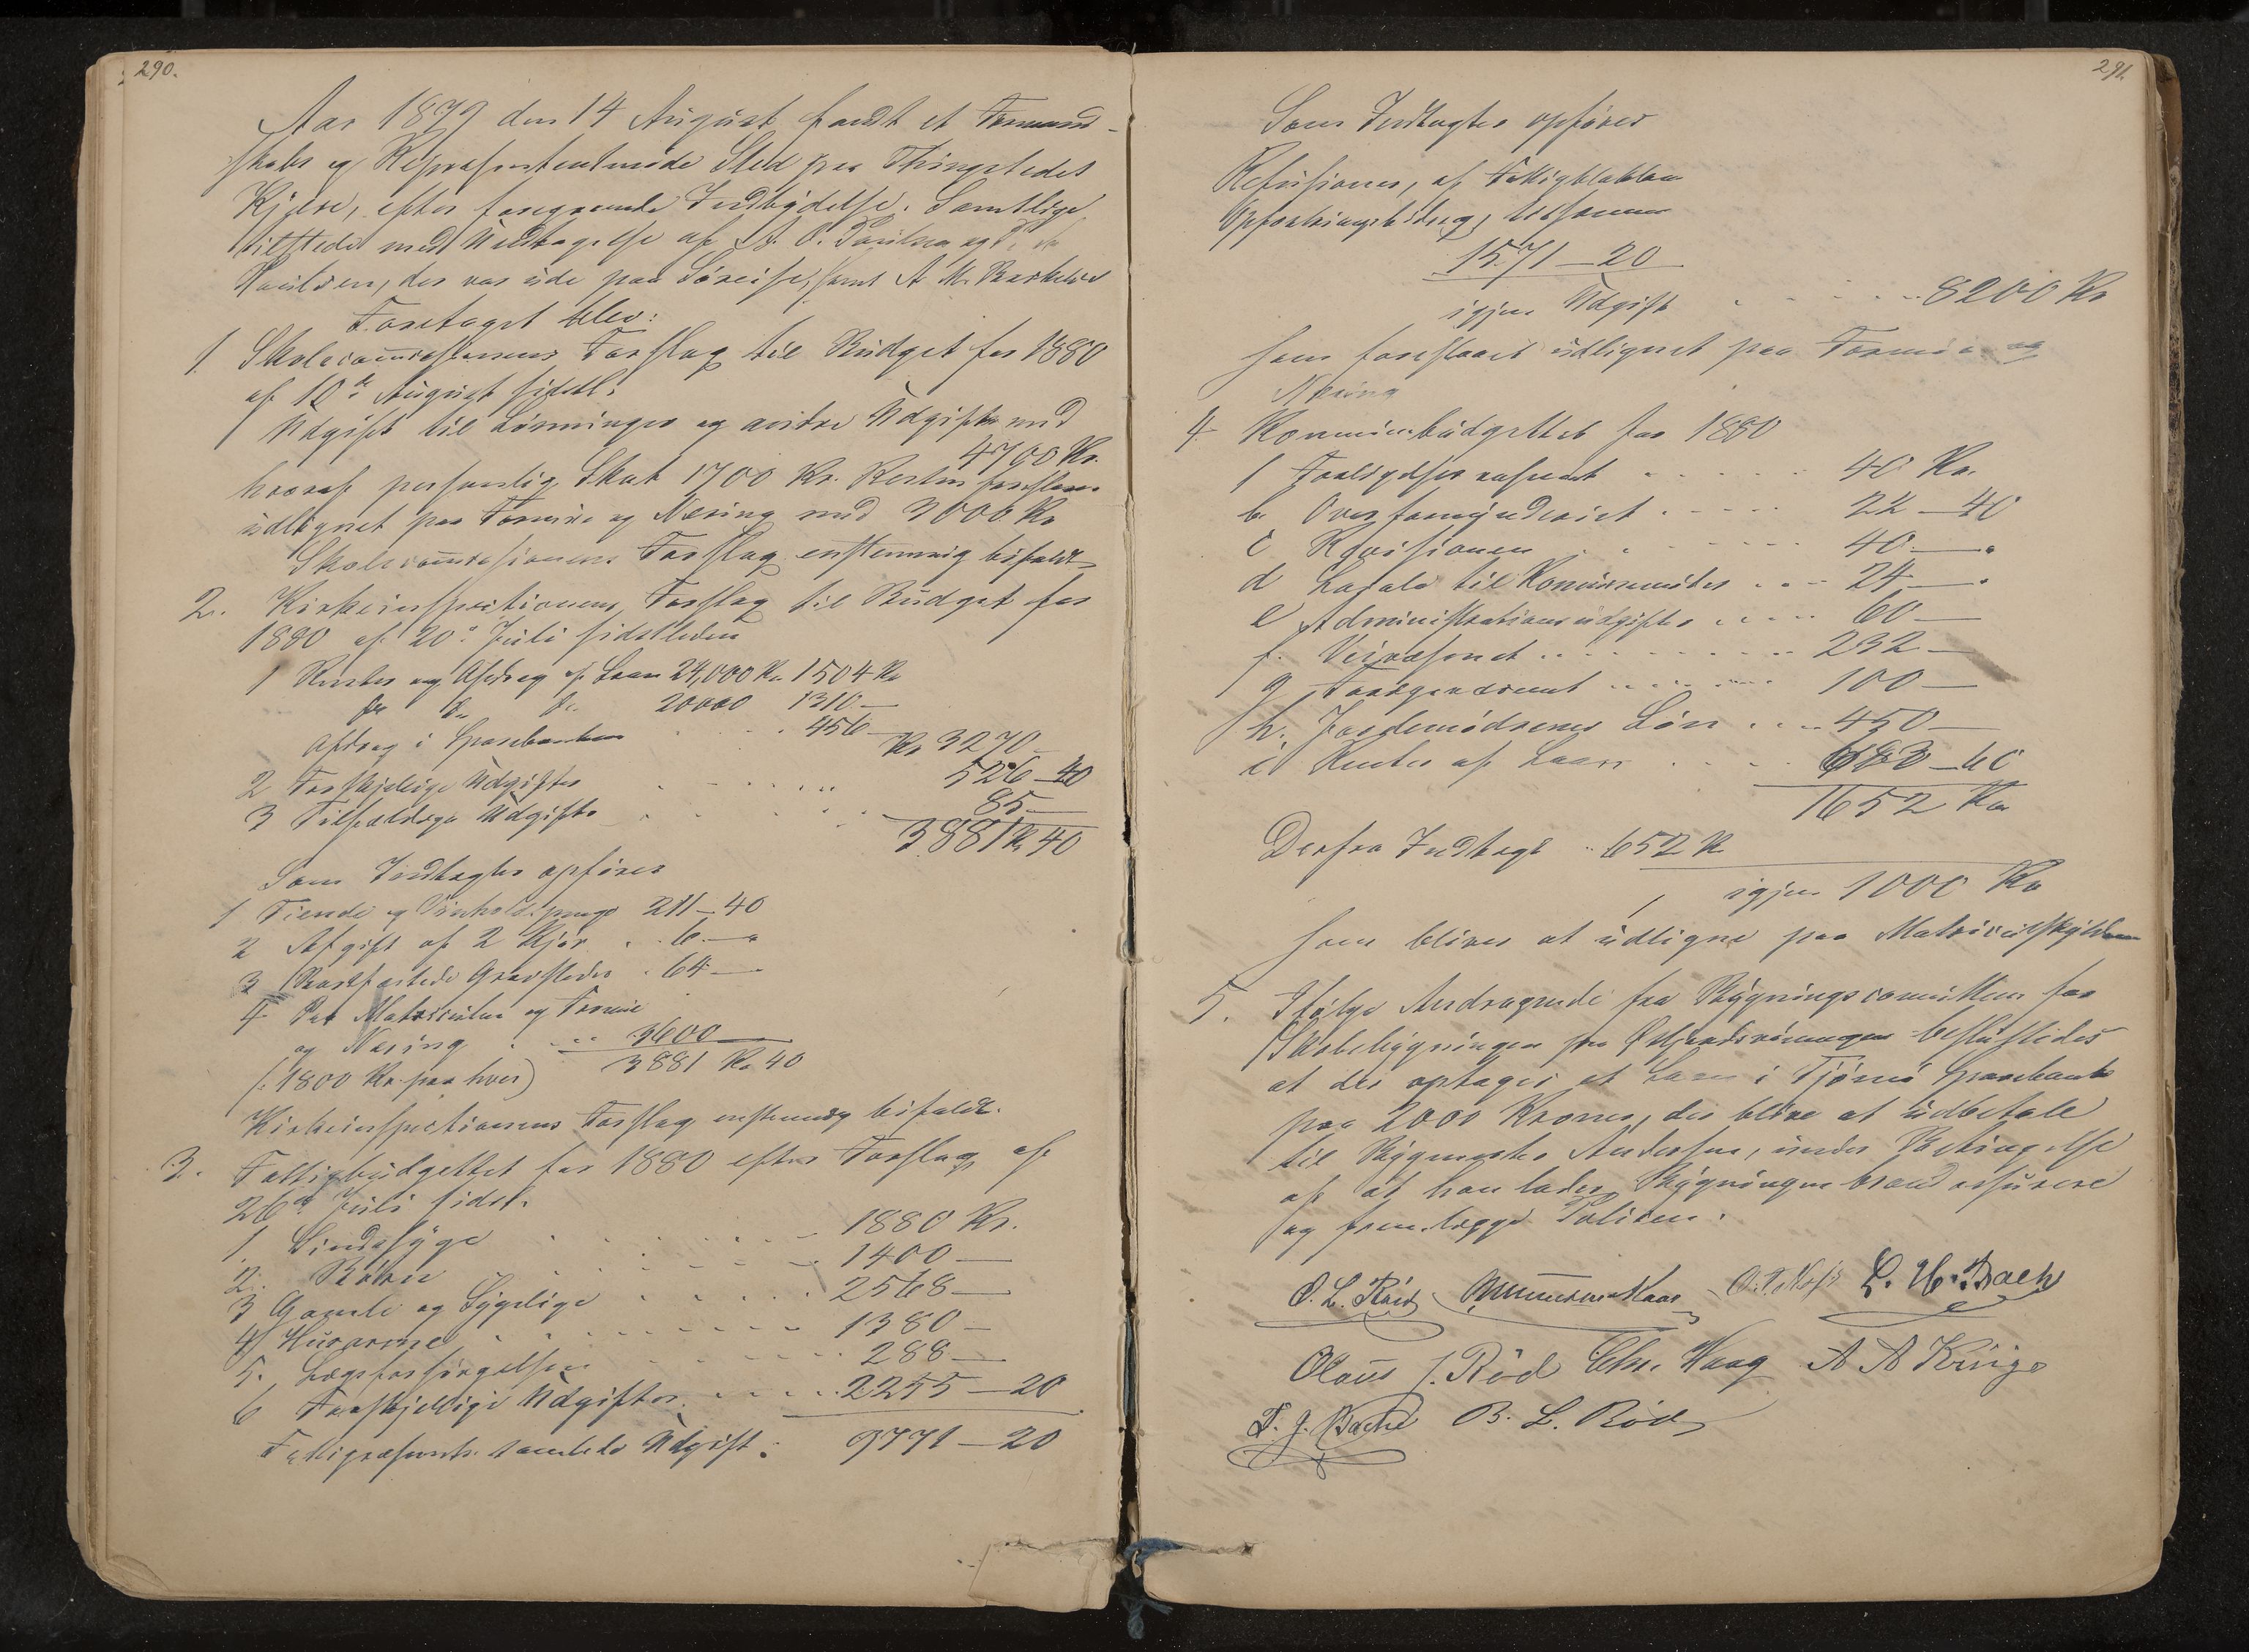 290.
Aar 1879 den 14 August fandt et Formand-
skabs og Repræsentantmøde Sted paa Thingstedet
Kjære, efter foregaaende Indbydelse. Samtlige
tilstede med Undtagelse af O. Paulsen og
Paulsen, der var ude paa Søreise, samt A M.
Foretaget blev:
1 Skolecommissionens Forslag til Budget for 1880
af 10de August sidstl.
Udgift til Lønninger og andre Udgifter med
4700 Kr.
hvoraf personlig Skat 1700 Kr. Resten foreslaaes
udlignet paa Formue og Næring med 3000 Kr
Skolecommissionens Forslag enstemmig bifaldt
2. Kirkeinspectionens Forslag til Budget for
1880 af 20de Juli sidstleden
1 Renter og Afdrag af Laan 24,000 Kr. 1504 Kr
do do do 20000 1310 —
Afdrag i Sparebanken 456
Kr 3270 —
2 Forskjellige Udgifter 526 — 40
3 Tilfældige Udgifter 85 —
3881 Kr 40
Som Indtægter opføres
1 Tiende og penge 211 — 40
2 Afgift af 2 Kjør 6 — "
3 Bortfæstede Gravsteder 64 —
4 Paa Matriculen og Formue
og Næring 3600 —
(: 1800 Kr. paa hver) 3881 Kr 40
Kirkeinspectionens Forslag enstemmig bifaldt.
3. Fattigbudgettet for 1880 efter Forslag af
26de Juli sidstl.
1. Sindssyge 1880 Kr.
2. Børn 1400 —
3 Gamle og Sygelige 2568 —
4 Husarme 1380 —
5. Lægsforsørgelsen 288 —
6 Forskjellige Udgifter 2255 — 20
Fattigvæsenets samlede Udgift: 9771 — 20
291.
Som Indtægter opføres
Refusioner, af Fattigkassen
Opfostringsbidrag, tilsammen
1571 — 20
igjen Udgift 8200 Kr
som foreslaaes udlignet paa Formue og
Næring
4 Kommunebudgettet for 1880
1 Forligelsesvæsenet 40 Kr.
b. Overformynderiet 22 — 40
c Revisionen 40 — "
d Locale til Kommunemøder 24 — "
e Administrationsudgifter 60 —
f. Veivæsenet 232 —
g 100 —
h. Jordemødrenes Løn 450 —
i. Renter af Laan 683 — 60
1652 Kr
Derfra Indtægt 652 Kr
igjen 1000 Kr
som bliver at udligne paa Matriculskylden
5. Ifølge Andragende fra Bygningscomitteen for
Skolebygningen paa besluttedes
at der optages et Laan i Tjømø Sparebank
paa 2000 Kroner, der blive at udbetale
til Bygmester Andersen, under Betingelse
af at han lader Bygningen brandassurere
og fremlægge Policen.
O. L. Röed L. H. Bache
Olaus J. Röd Chr. Haag A A Krüge
T. J. Bache B. L. Röd